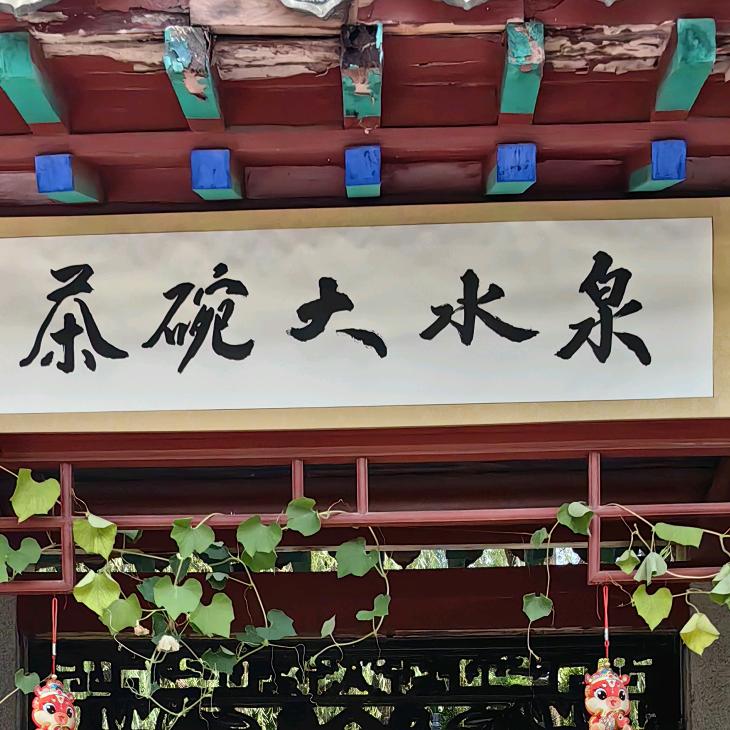 泉水大碗茶